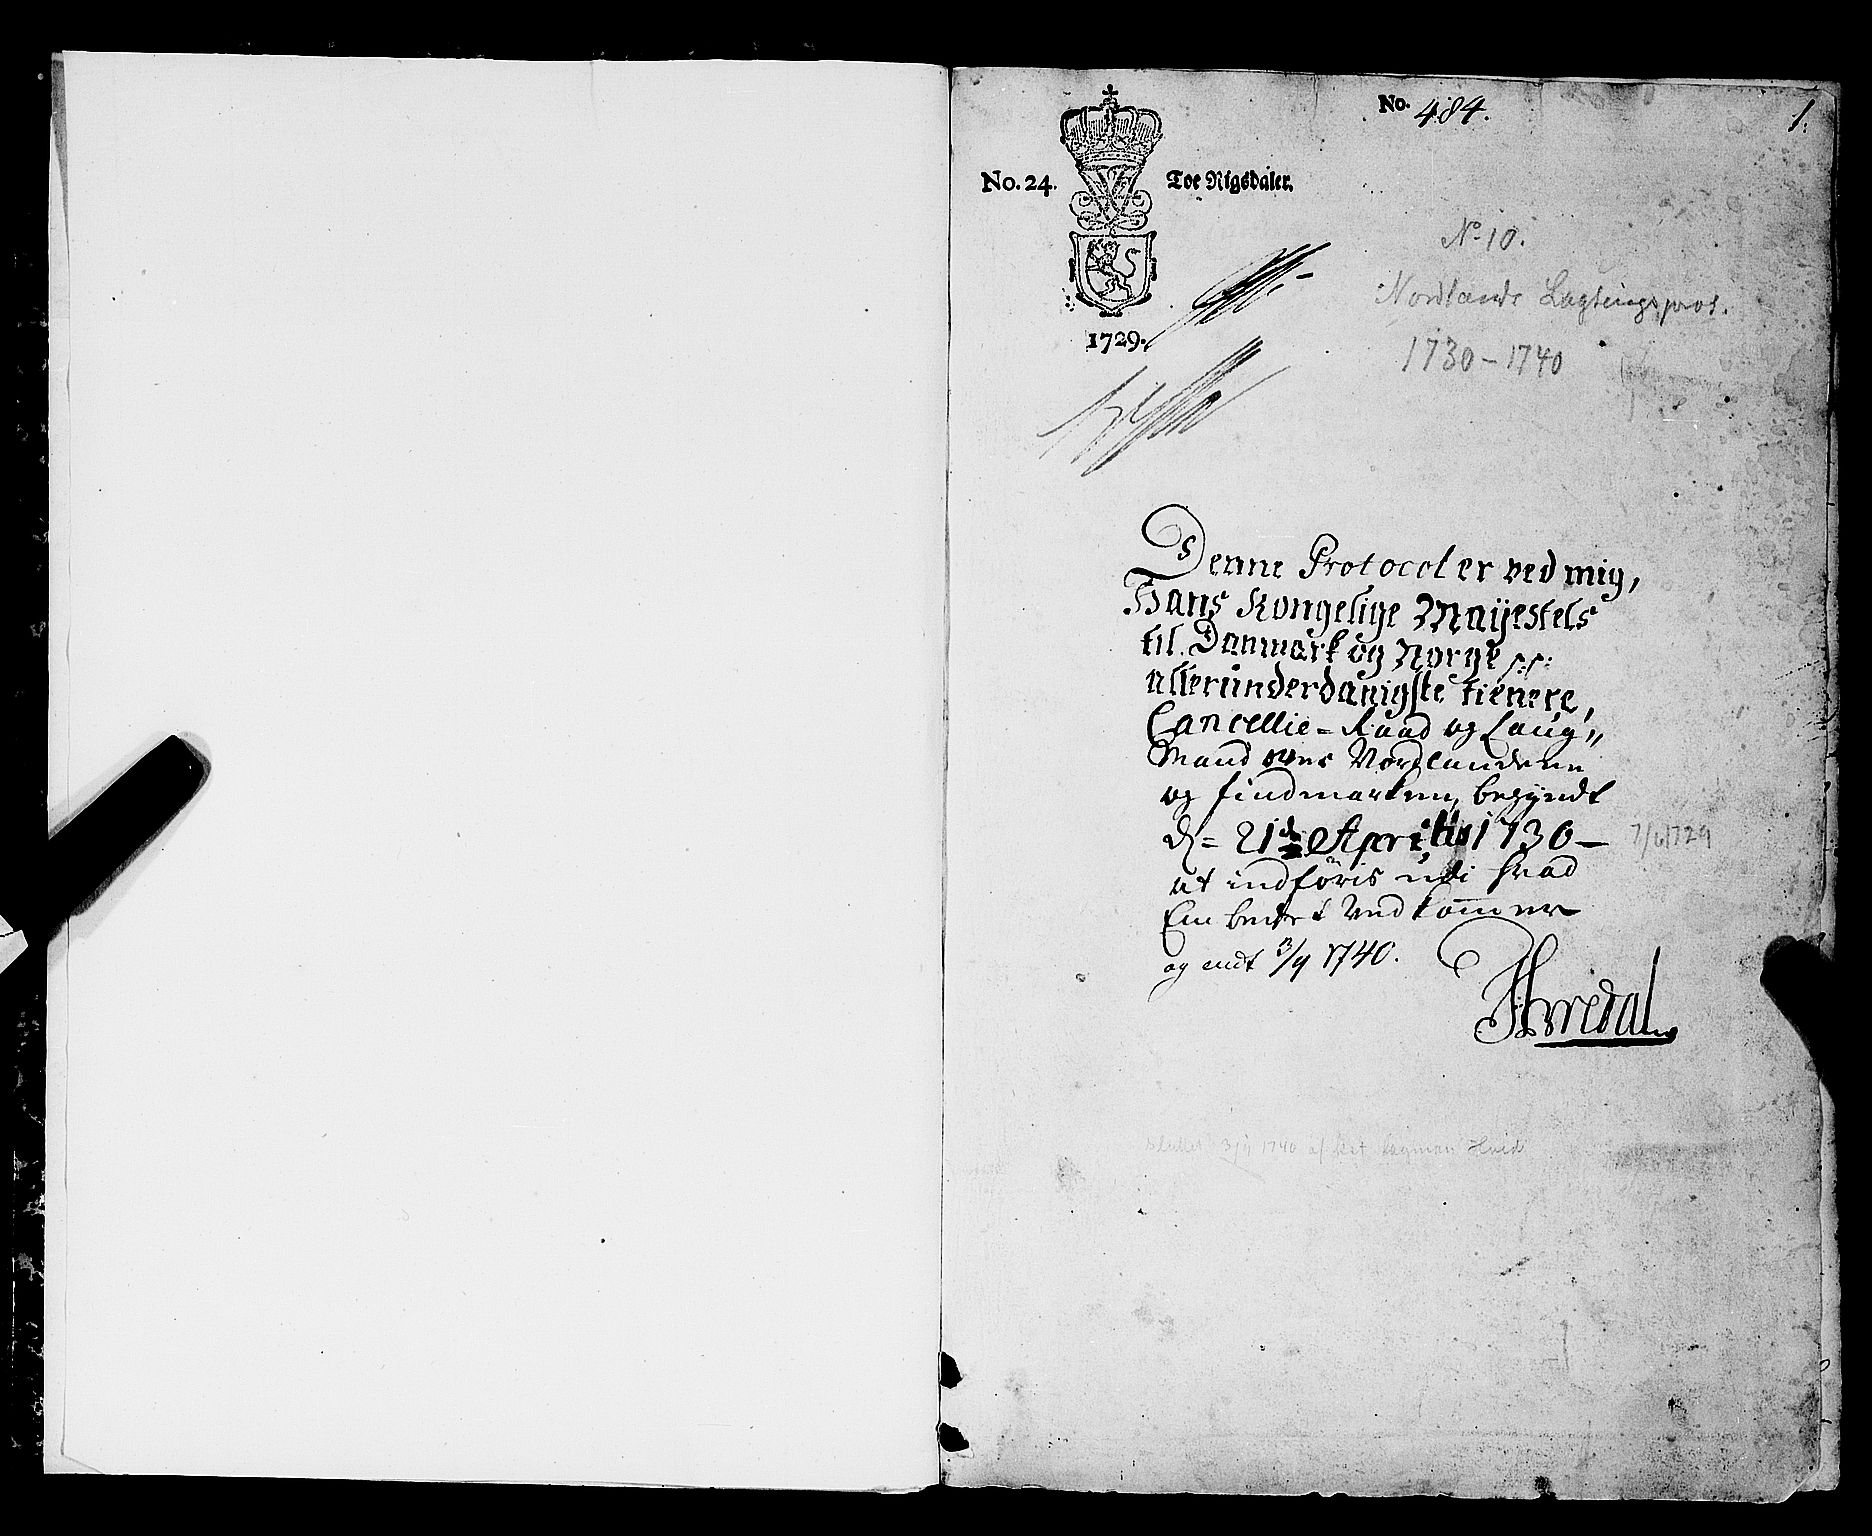 No. 484.
1.
No. 24.
Toe Rigsdaler.
1729.
No 10.
Nordlands Lagtingsprot.
1730-1740
Denne Protocol er ved mig,
Hans Kongelige Mayestets
til Danmark og Norge p:p:
allerunderdanigste tienere,
Cancellie-Raad og Laug„
Mand over Nordlandene
og findmarken, begyndt
d= 21de Aprilis 1730-
7/6 1729
at indføris udi hvad
Embedet Vedkommer
og endt 3/9 1740.
Schredal
Sluttet 3/9 1740 af kst lagman Hvid